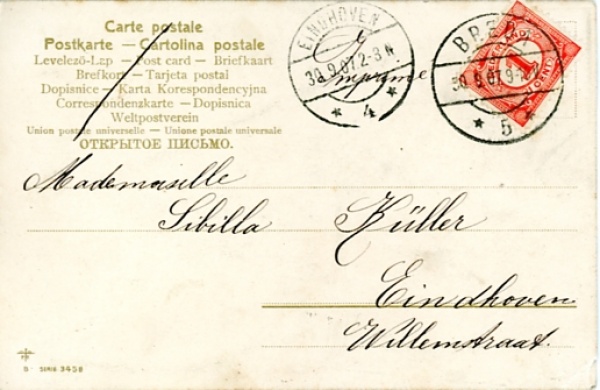 Carte postale
Postkarte — Cartolina postale
Levelező-Lap — Post card — Briefkaart
Brefkort — Tarjeta postal
Dopisnice — Karta Korespondencyjna
Correspondenzkarte — Dopisnica
Weltpostverein
Union postale universelle — Unione postale universale
ОТКРЫТОЕ ПИСЬМО.
EINDHOVEN
30.9.07.2-3 N
4
Imprimé
BREDA
30.9.07.9-
5
1
Mademoiselle
Sibilla Küller
Eindhoven
Willemstraat.
SERIE 3458